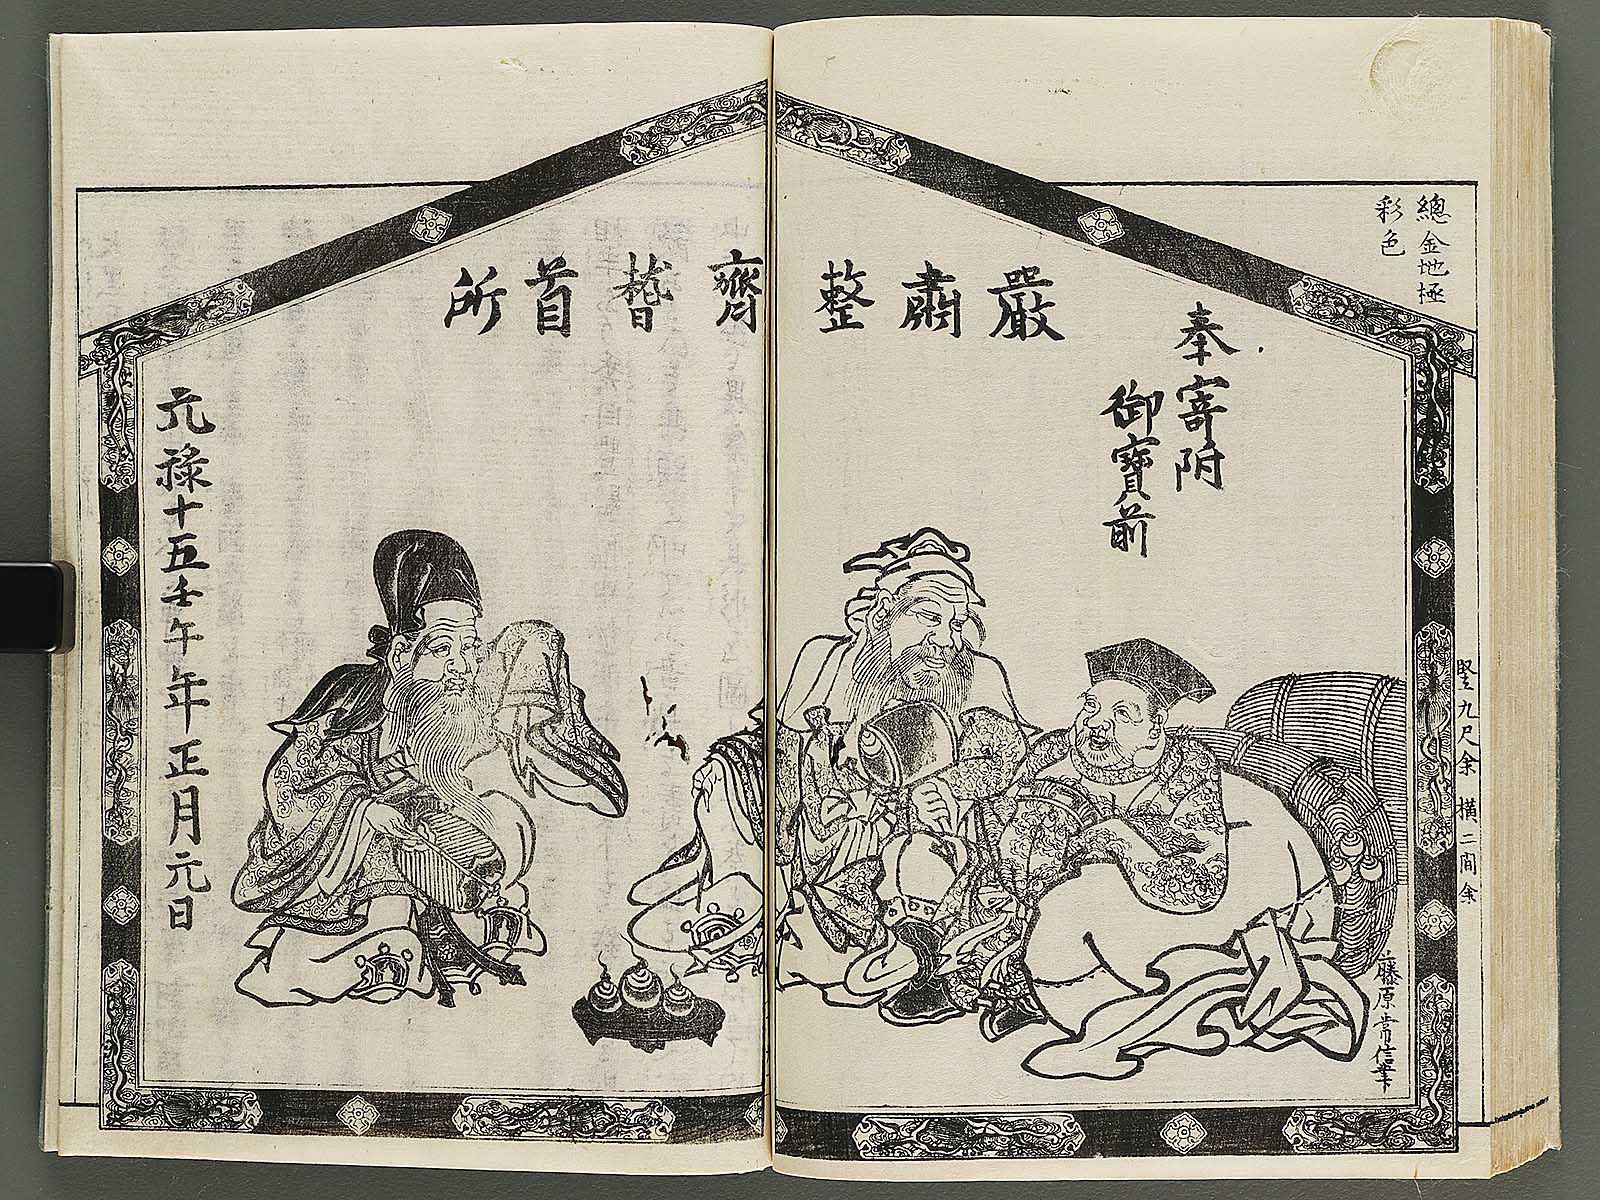 總金地極
彩色
奉寄附
御寳前
嚴肅整齊稽首所
元禄十五壬午年正月元日
藤原常信筆
竪九尺余 横二間余